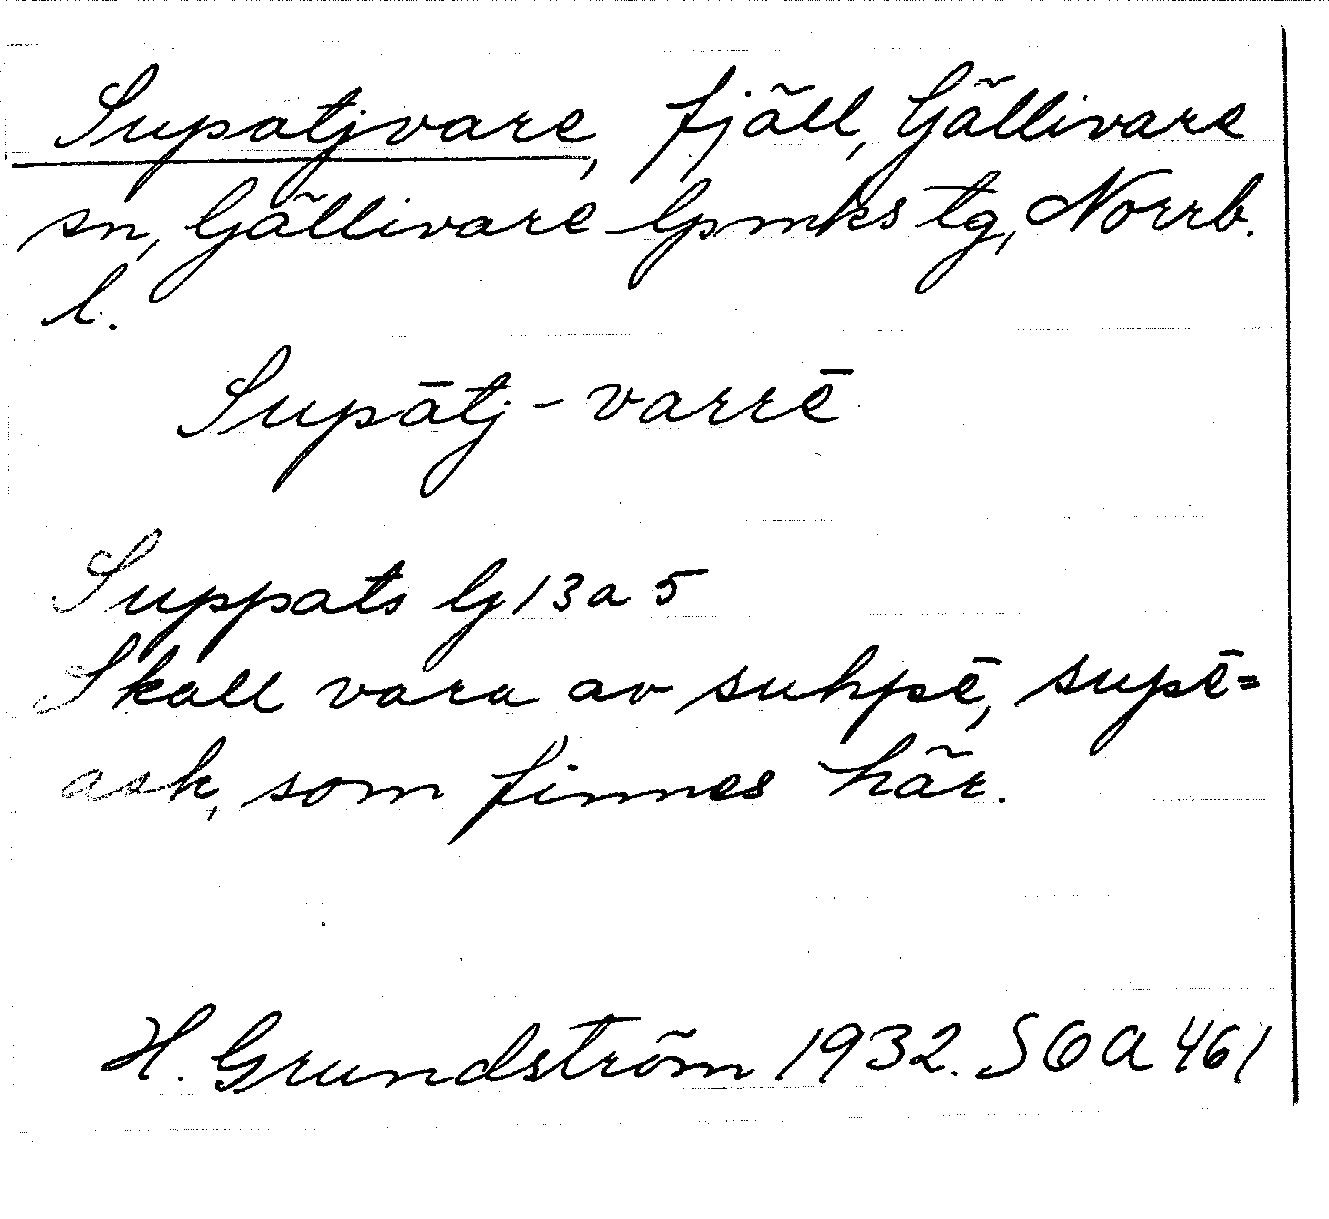 Supatjvare, fjäll, Gällivare
sn, Gällivare lpmks tg, Norrb.
l.
Supātj-varrē
Suppats G 13 a 5
Skall vara av suhpē, supē=
ask, som finnes här.
H. Grundström 1932. SOA 461